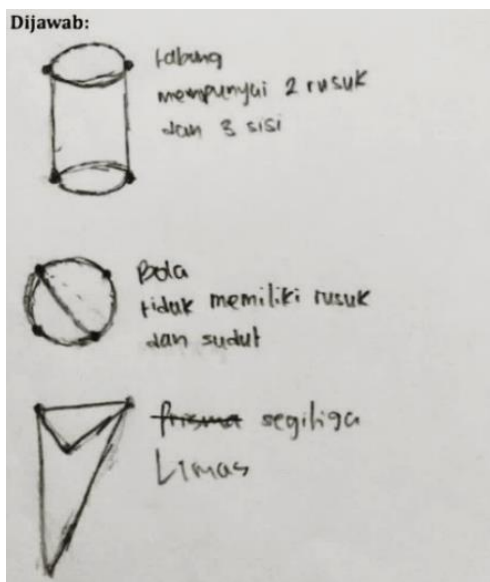 Dijawab:
tabung
mempunyai 2 rusuk
dan 3 sisi
Bola
tidak memiliki rusuk
dan sudut
Prisma segitiga
Limas